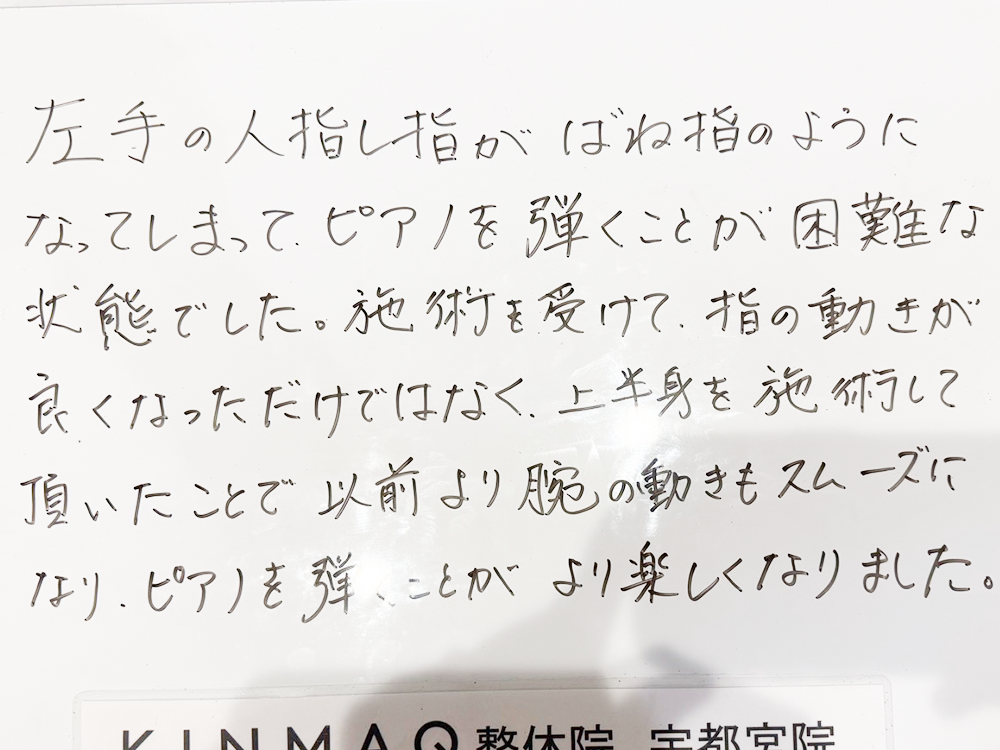 左手の人指し指が ばね指のように
なってしまって、ピアノを弾くことが困難な
状態でした。施術を受けて、指の動きが
良くなっただけではなく、上半身を施術して
頂いたことで以前より腕の動きもスムーズに
なり、ピアノを弾くことがより楽しくなりました。
KINMAQ 整体院 宇都宮院